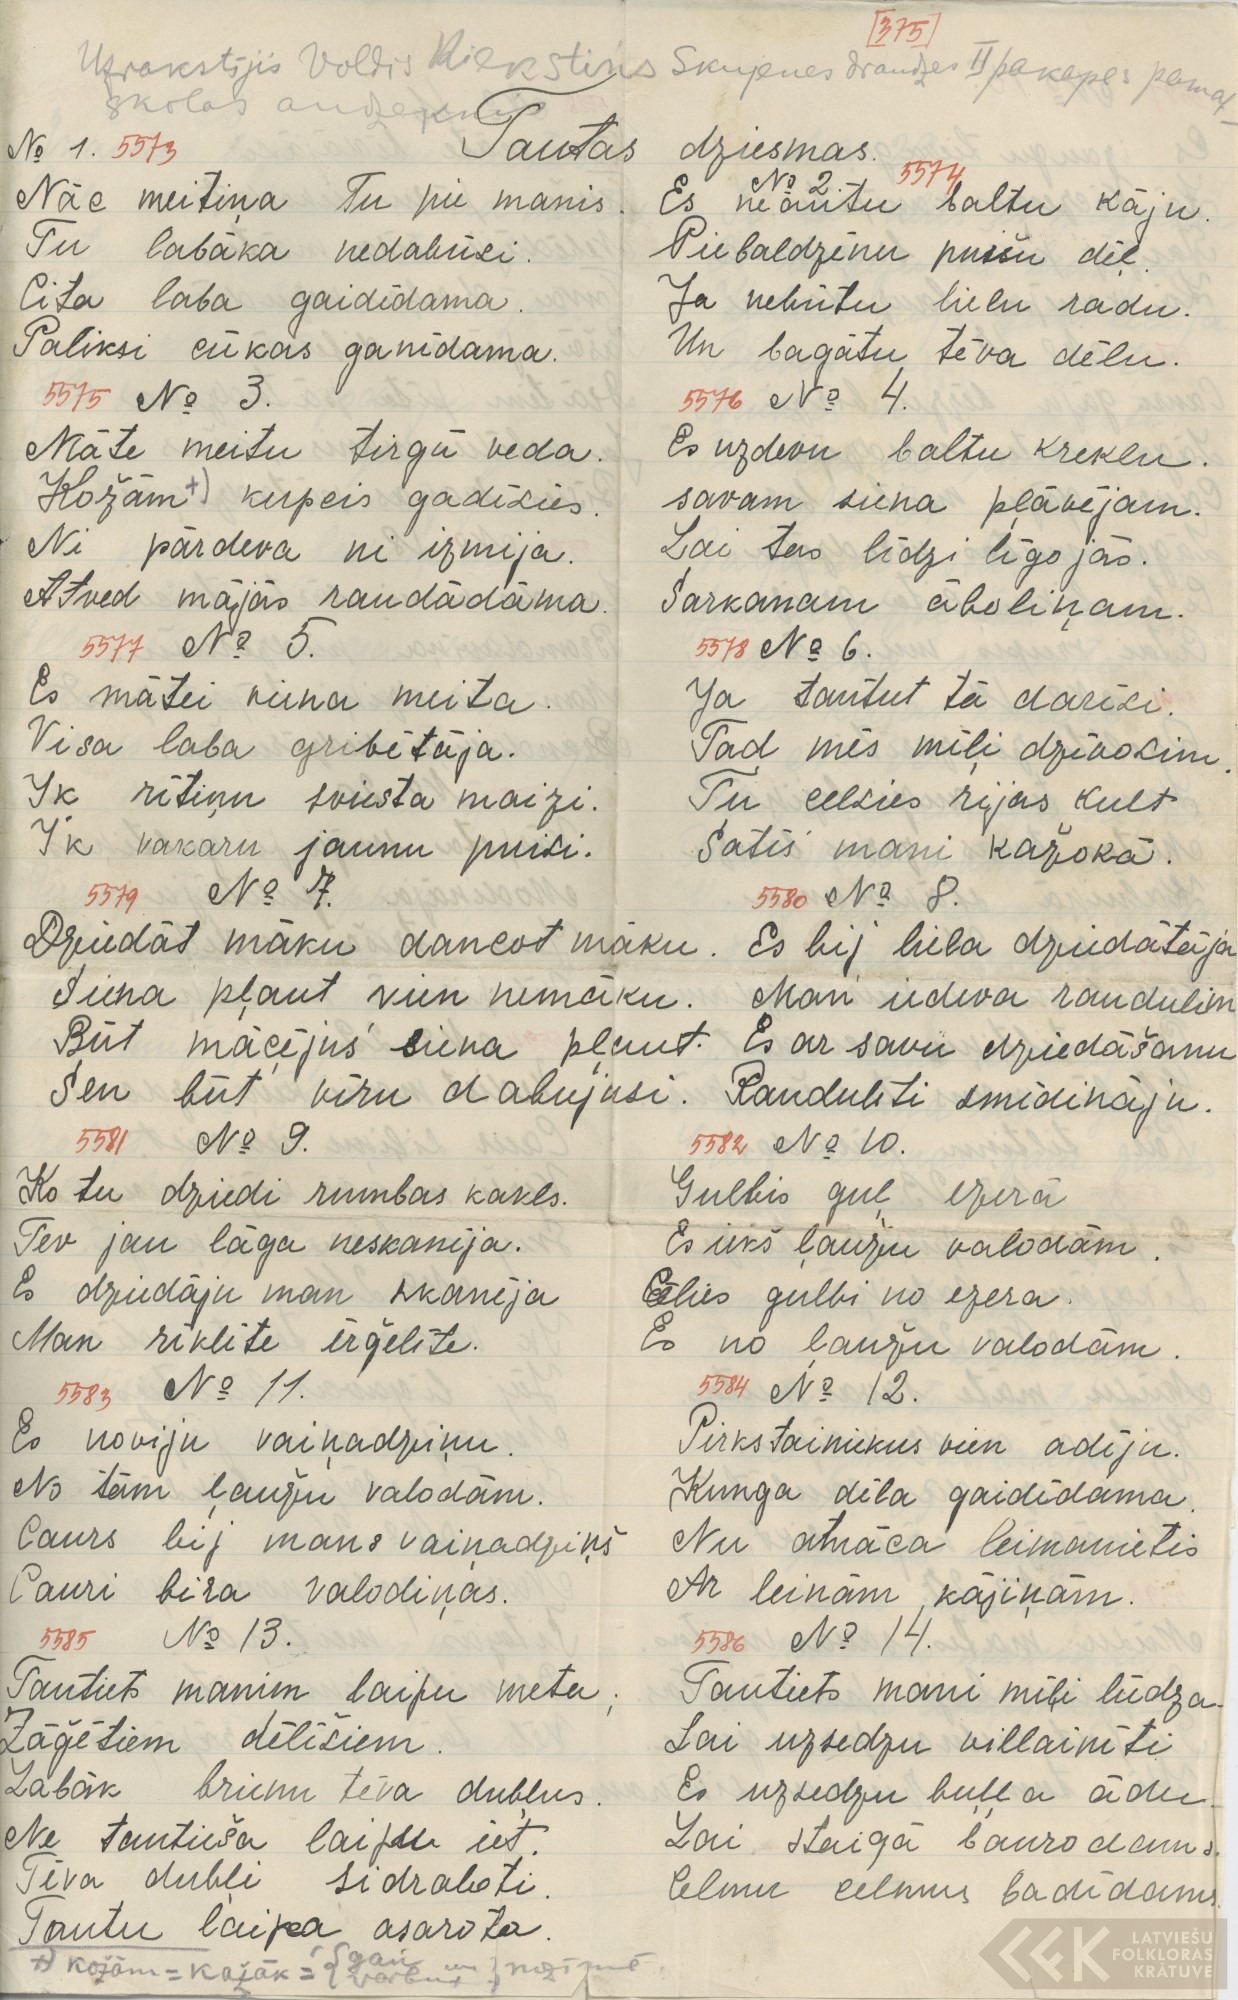 [375]
Uzrakstījis Voldis Riekstiņš Skujenes draudzes II pakāpes pamat
skolas audzēknis
Tautas dziesmas.
№ 1. 5573
Nāc meitiņa Tu pie manis.
Tu labāka nedabūsi.
Cita laba gaidīdama.
Paliksi cūkas ganīdama.
№ 2 5574
Es neautu baltu kāju.
Piebaldzēnu puišu dēļ.
Ja nebūtu lielu radu.
Un bagātu tēva dēlu.
5575 № 3.
Māte meitu tirgū veda.
Kožām+) kupcis gadīsies.
Ni pārdeva ni izmija.
Atved mājās raudādāma.
5576 № 4.
Es uzdevu baltu kreklu.
savam siena pļāvējam.
Lai tas līdzi līgojās.
Sarkanam āboliņam.
5577 № 5.
Es mātei viena meita.
Visa laba gribētāja.
Ik rītiņu sviesta maizi.
Ik vakaru jaunu puisi.
5578 № 6.
Ja tautut tā darīsi.
Tad mēs mīļi dzīvosim.
Tu celsies rijas kult
Satīs mani kažokā.
5579 № 7.
Dziedāt māku dancot māku.
Siena pļaut vien nemāku.
Būt mācējus siena pļaut.
Sen būt vīru dabujusi.
5580 № 8.
Es bij liela dziedātāja
Man iedeva raudulim
Es ar savu dziedāšanu
Rauduliti smīdināju.
5581 № 9.
Ko tu dziedi rumbas kakls.
Tev jau lāga neskanīja.
Es dziedāju man skanēja
Man rīklīte ērģelīte.
5582 № 10.
Gulbis guļ ezerā
Es iekš ļaužu valodām.
Celies gulbi no ezera.
Es no ļaužu valodām.
5583 № 11.
Es noviju vaiņadziņu.
No tām ļaužu valodām.
Caurs bij mans vaiņadziņš
Cauri bira valodiņas.
5584 № 12.
Pirkstainiekus vien adīju.
Kunga dēla gaidīdama.
Nu atnāca leimanietis
Ar leinām kājiņām.
5585 № 13.
Tautiets manim laipu meta;
Zāģētiem dēlīšiem.
Labāk brienu tēva dubļus.
Ne tautieša laipu iet.
Tēva dubļi sidraboti.
Tautu laipa asarota.
5586 № 14.
Tautiets mani mīļi lūdza.
Lai uzsedzu villainīti
Es uzsedzu buļļa ādu.
Lai staigā baurodams.
Celmu celmus badīdams.
+) kožām = kazāk = { gan un varbut } nozīmē.
LATVIEŠU
FOLKLORAS
KRĀTUVE